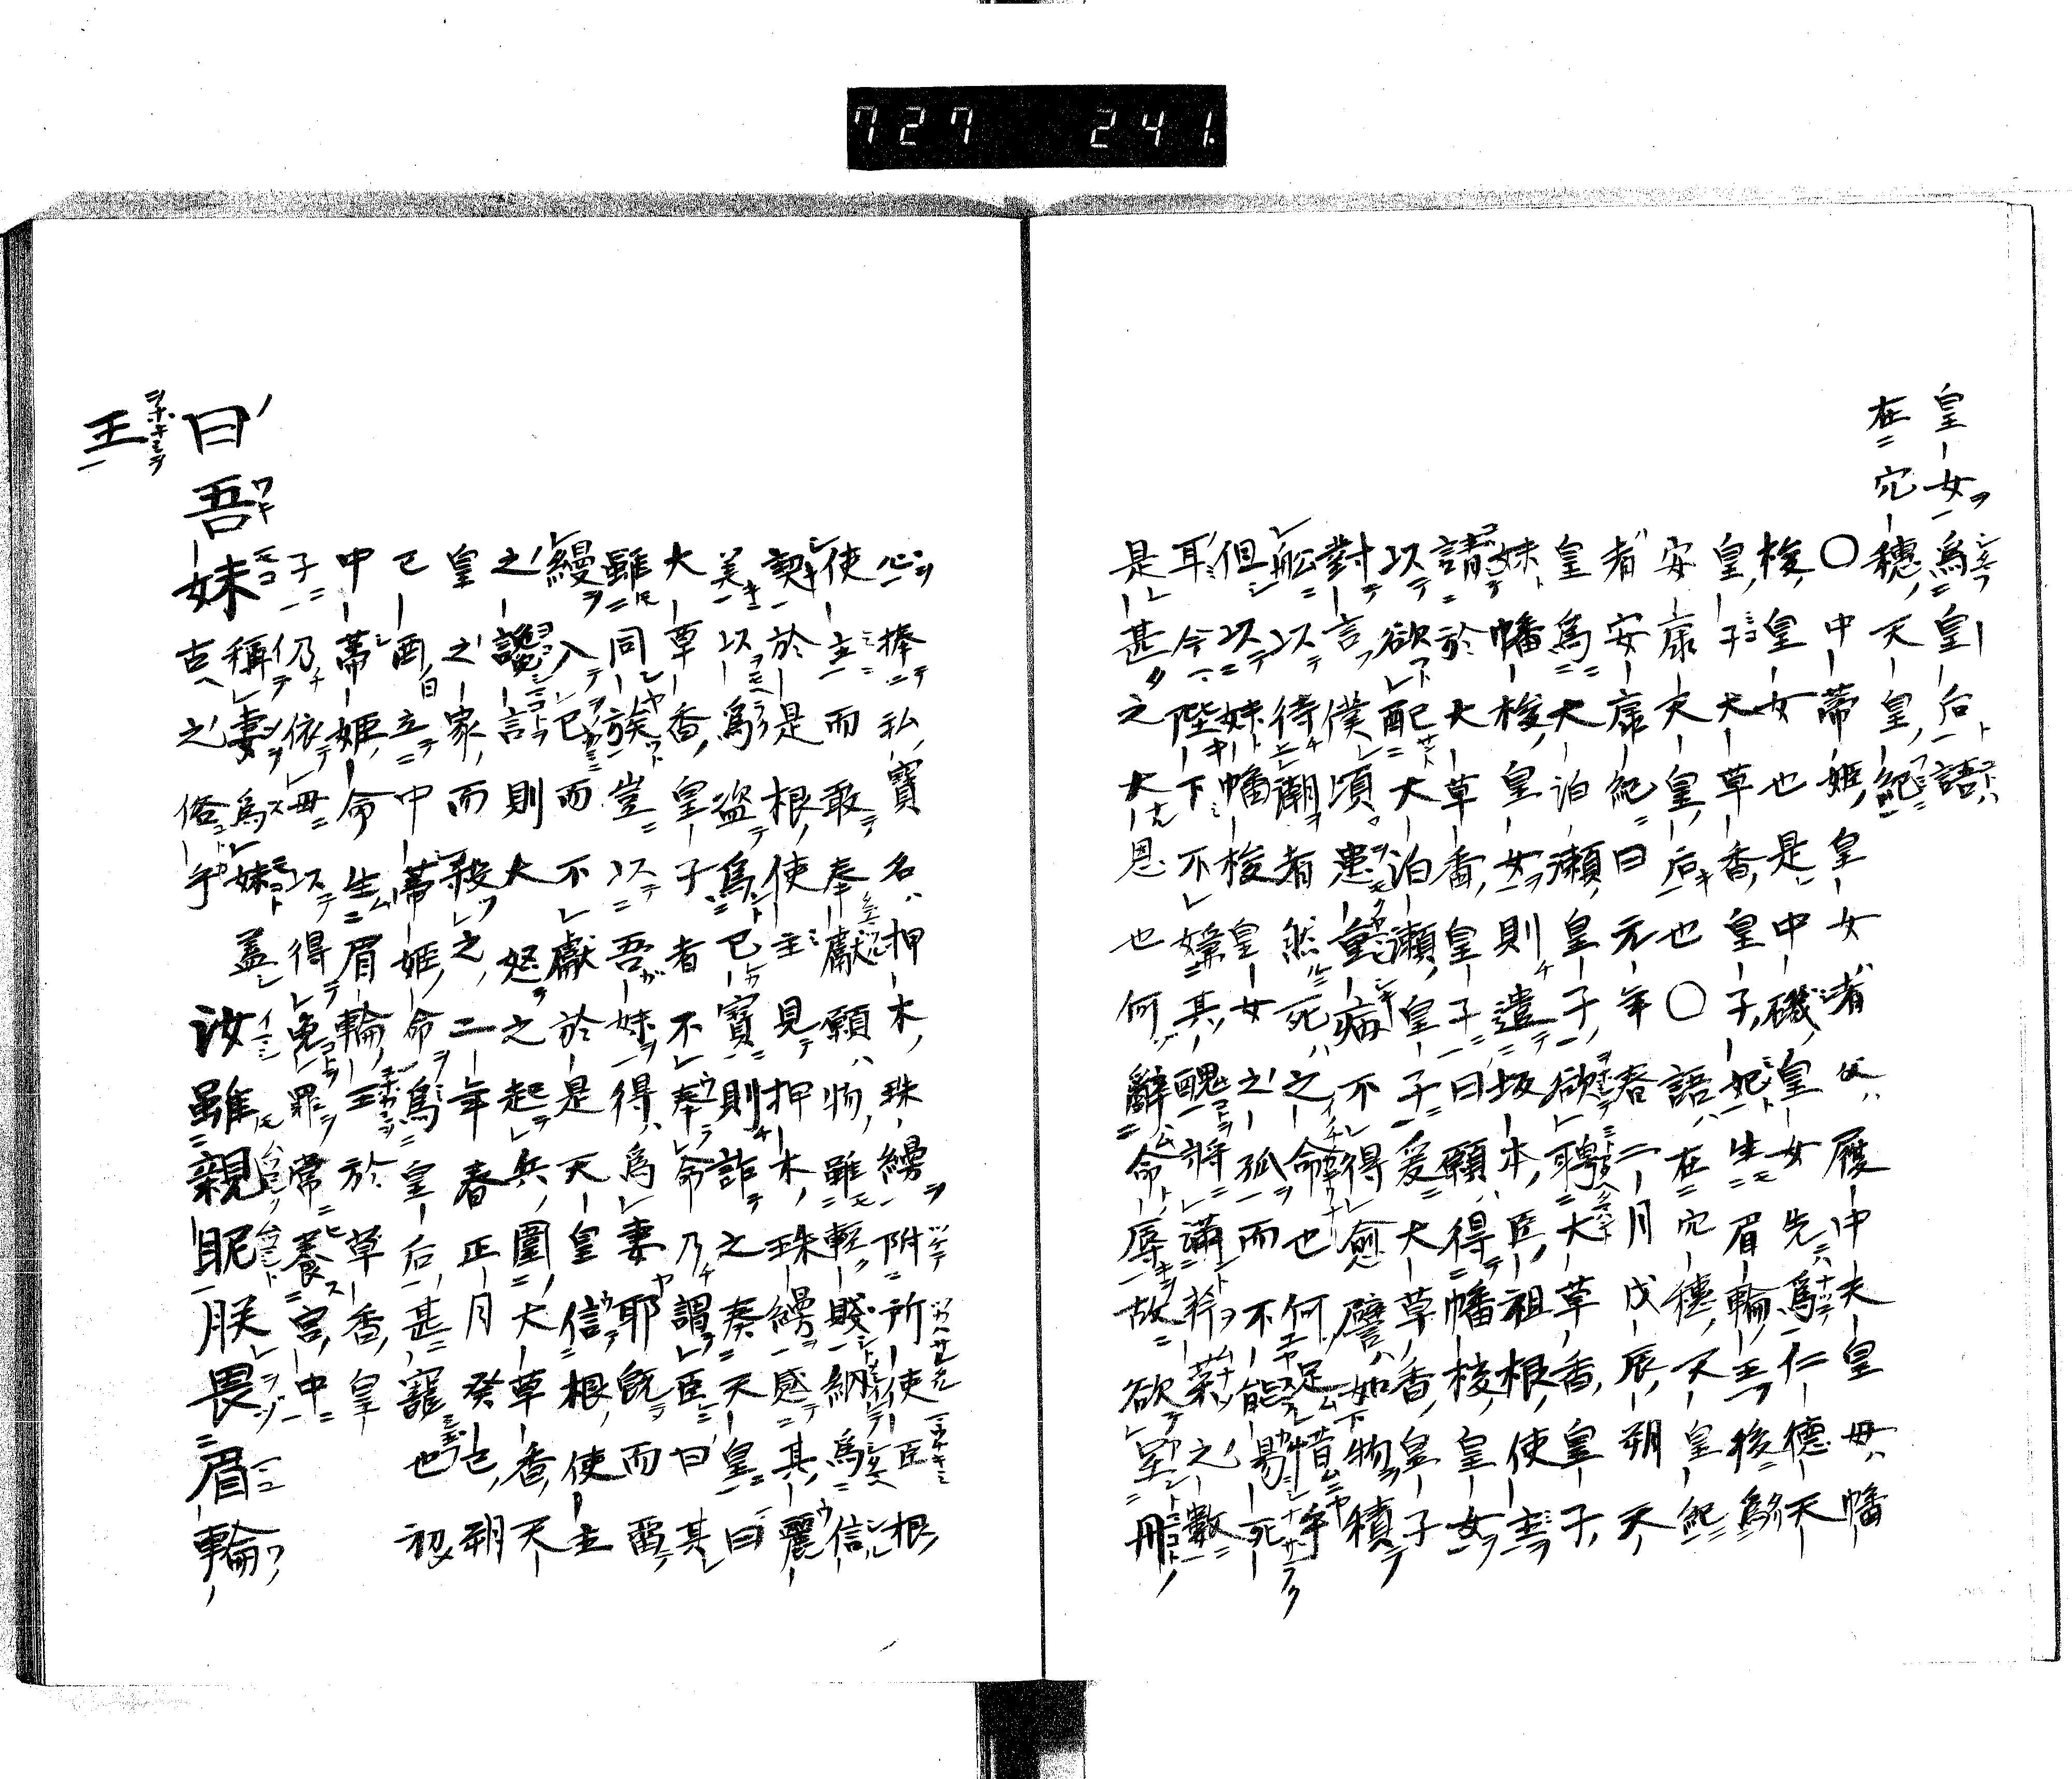 727 241.
皇女爲皇后語
在穴穗天皇紀
○中蒂姬皇女者父履中天皇母幡
梭皇女也是中磯皇女先爲仁德天
皇皇子大草香皇子妃生眉輪王後爲
安康天皇后也○語在穴穗天皇紀
者安康紀曰元年春二月戊辰朔天
皇爲大泊瀬皇子欲聘大草香皇子
妹幡梭皇女則遣坂本臣祖根使主
請於大草香皇子曰願得幡梭皇女
以欲配大泊瀬皇子爰大草香皇子
對言僕頃患重病不得愈譬如物積
舩以待潮者然死之命也何足惜乎
但以妹幡梭皇女之孤而不能易死
耳今陛下不嫌其醜將滿荇菜之數
是甚之大恩也何辭命辱故欲呈丹
心捧私寶名押木珠縵附所使臣根
使主而敢奉獻願物雖輕賤納爲信
契於是根使主見押木珠縵感其麗
美以爲盜爲已寶則詐之奏天皇曰
大草香皇子者不奉命乃謂臣曰其
雖同族豈以吾妹得爲妻耶既而留
縵入已而不獻於是天皇信根使主
之讒言則大怒之起兵圍大草香天
皇之家而殺之二年春正月癸巳朔
已酉立中蒂姬命爲皇后甚寵也初
中蒂姬命生眉輪王於草香皇
子乃依母以得免罪常養宮中
曰吾妹稱妻爲妹蓋古之俗乎汝雖親昵朕畏眉輪
王